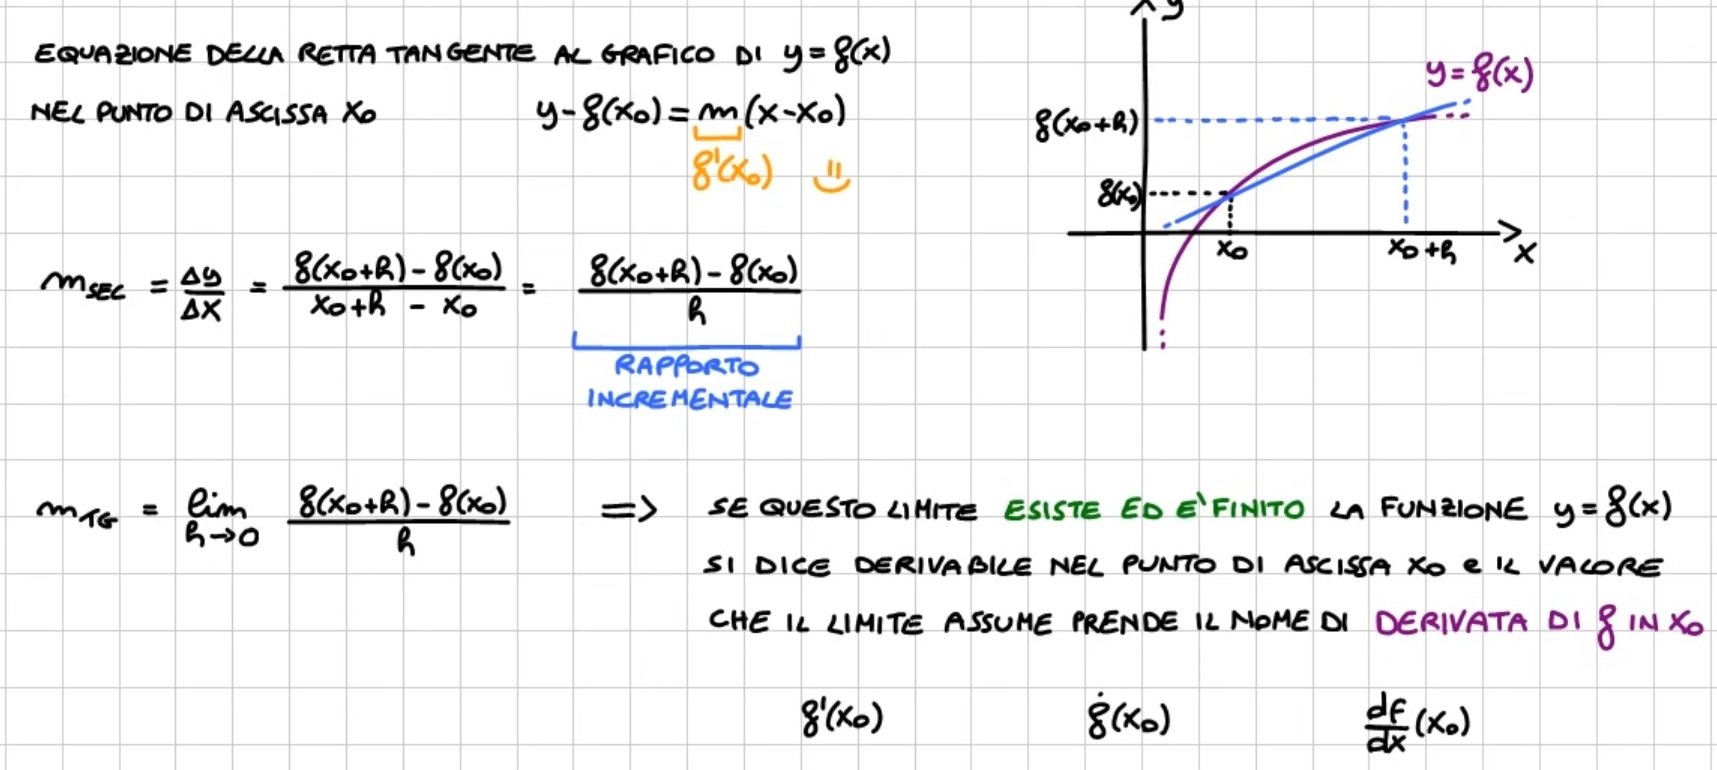 EQUAZIONE DELLA RETTA TANGENTE AL GRAFICO DI y = f(x)
NEL PUNTO DI ASCISSA x₀ y - f(x₀) = m (x - x₀)
f'(x₀)
m_SEC = Δy/Δx = (f(x₀+h) - f(x₀))/(x₀+h - x₀) = (f(x₀+h) - f(x₀))/h
RAPPORTO
INCREMENTALE
y
y = f(x)
f(x₀+h)
f(x₀)
x₀ x₀+h x
m_TG = lim h→0 (f(x₀+h) - f(x₀))/h => SE QUESTO LIMITE ESISTE ED E' FINITO LA FUNZIONE y = f(x)
SI DICE DERIVABILE NEL PUNTO DI ASCISSA x₀ e IL VALORE
CHE IL LIMITE ASSUME PRENDE IL NOME DI DERIVATA DI f IN x₀
f'(x₀) ḟ(x₀) df/dx (x₀)